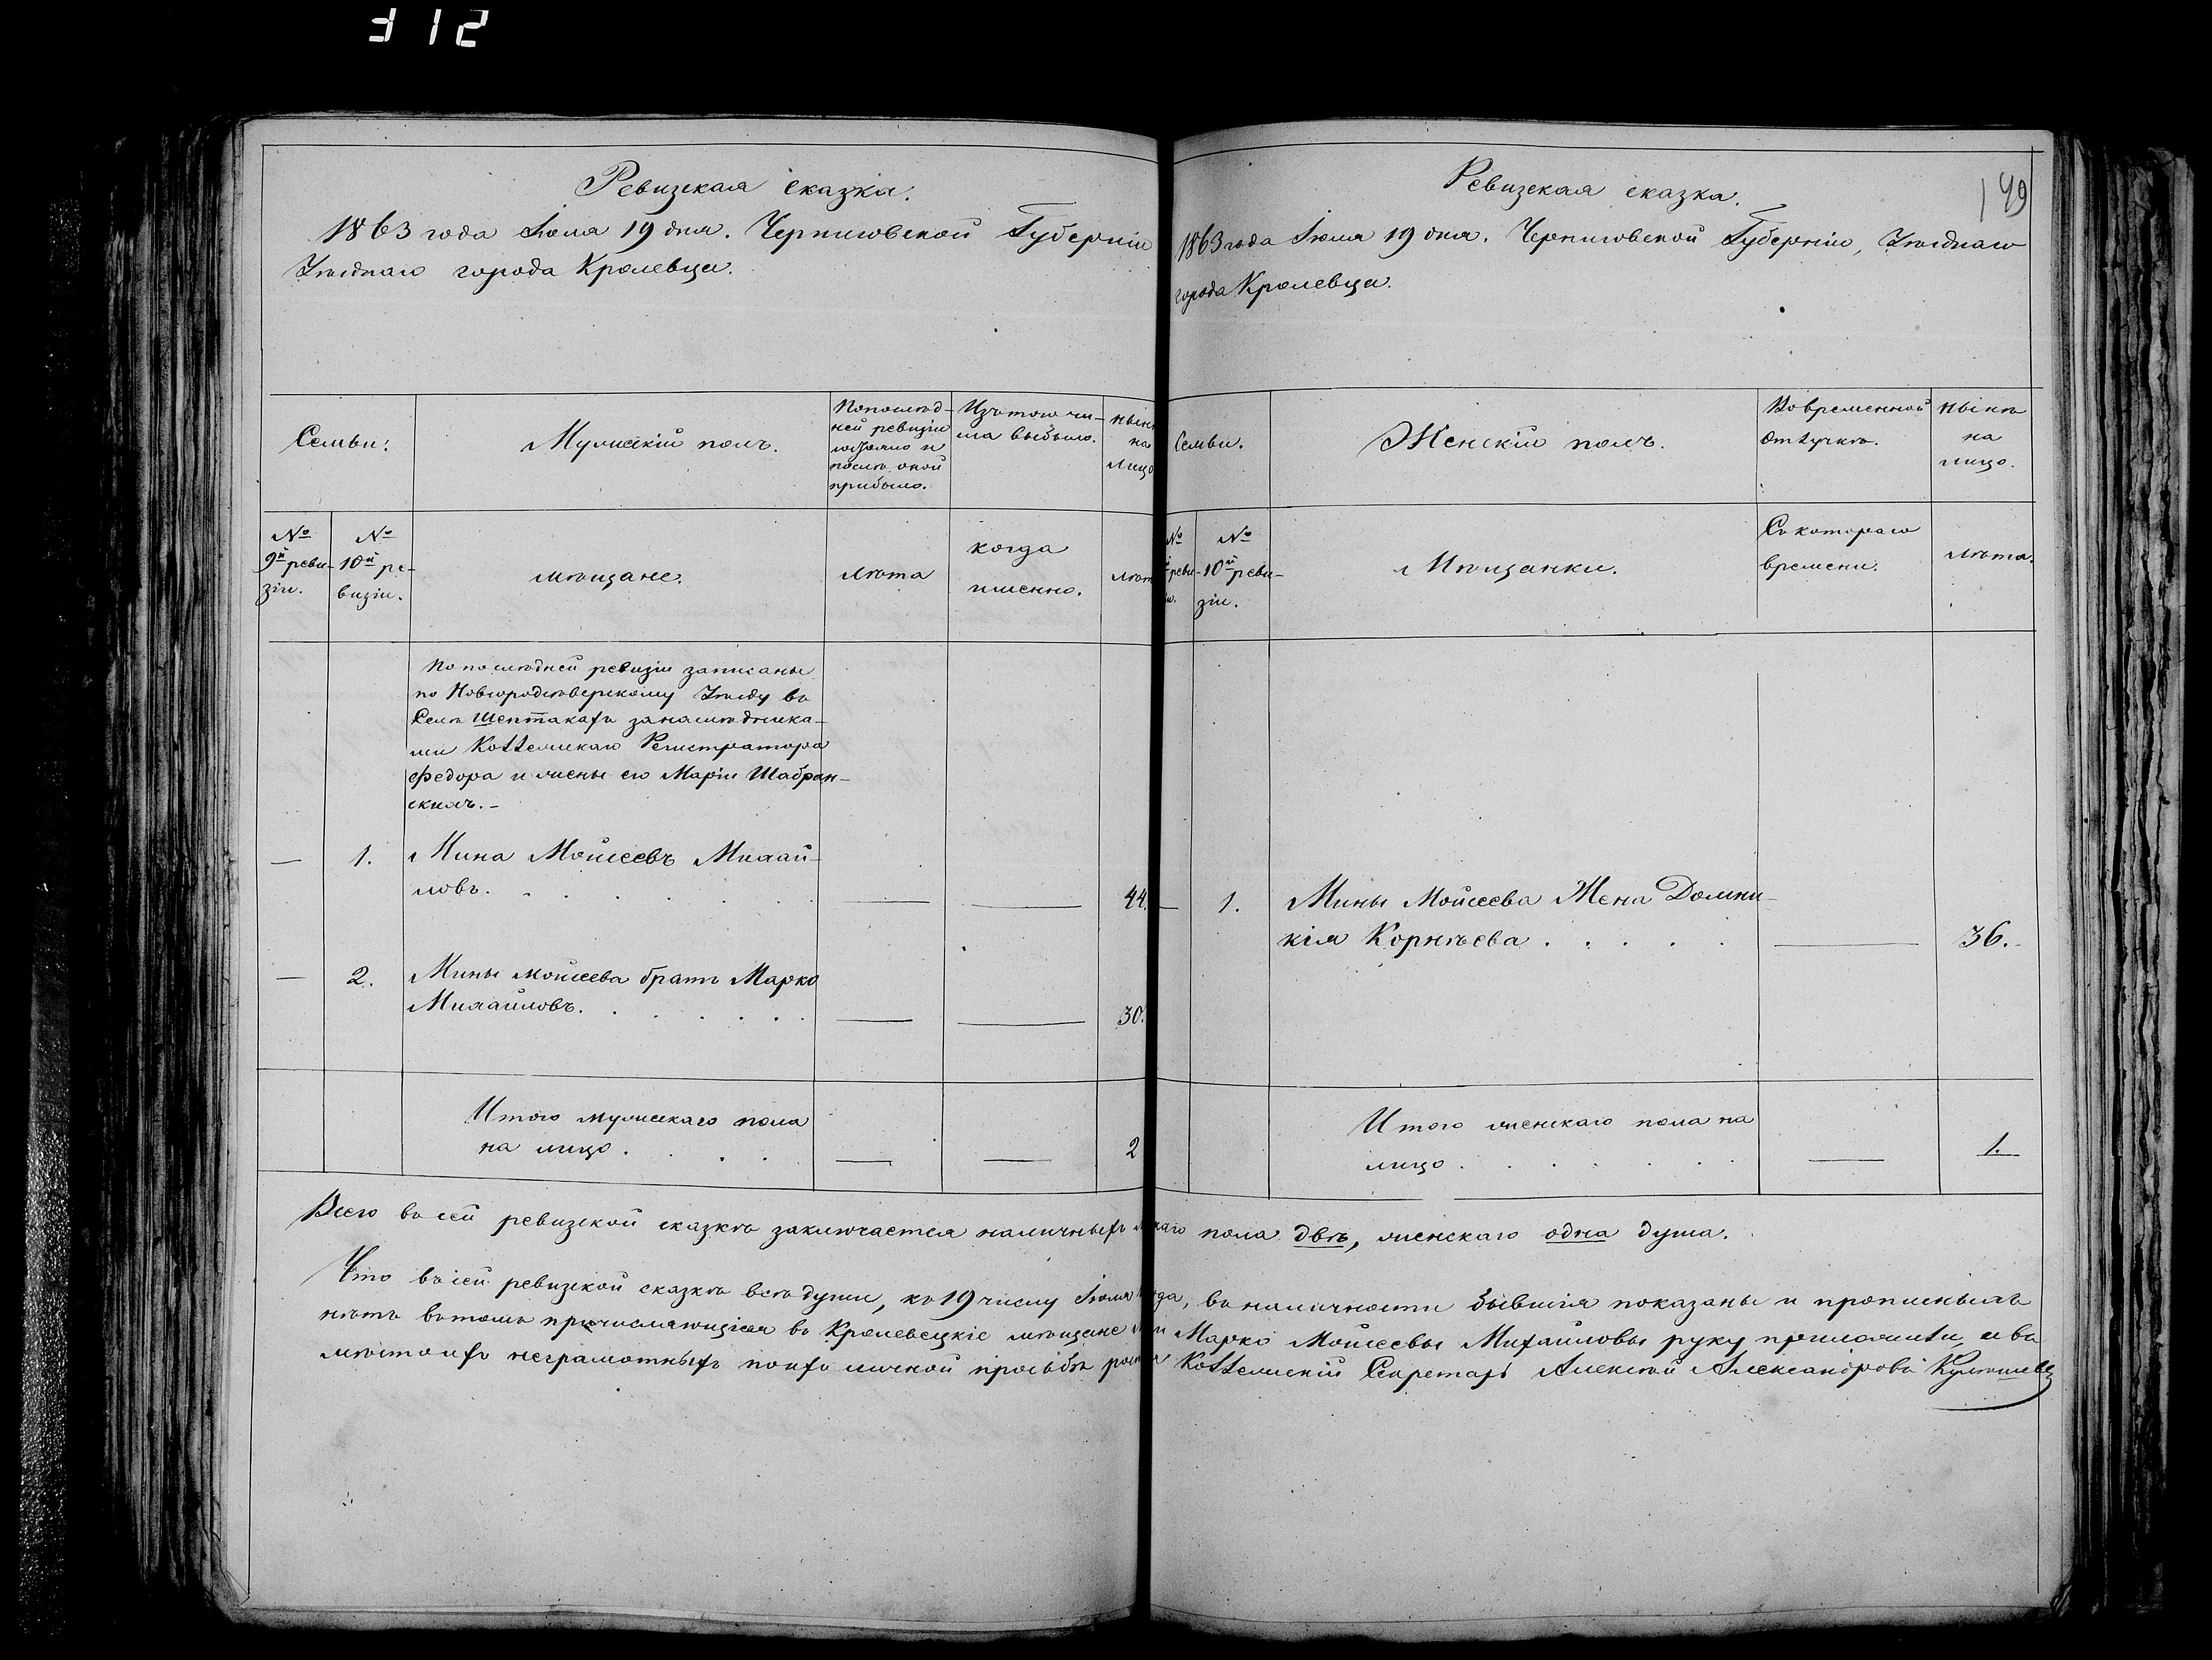 312
Ревизская сказка.
1863 года Іюля 19 дня. Черниговской Губерніи
Уѣзднаго города Кролевца.
Семьи.
Мужескій полъ.
По послѣд-
ней ревизіи
состояло и
послѣ оной
прибыло.
Изъ того чи-
сла выбыло.
нынѣ
на
лицо
№
9й реви-
зіи.
№
10й ре-
визіи.
мѣщане.
лѣта
когда
именно.
лѣта
По послѣдней ревизіи записаны
по Новгородсѣверскому Уѣзду въ
Селѣ Шептакахъ за наслѣдника-
ми Коллежскаго Регистратора
Федора и жены его Маріи Шабран-
скихъ.-
— 1. Мина Мойсеевъ Михай-
ловъ. . . . . . . — — 44.
— 2. Мины Мойсеева братъ Марко
Михайловъ. . . . . . . — — 30.
Итого мужескаго пола
на лицо . . . . — — 2
149
Ревизская сказка.
1863 года Іюля 19 дня. Черниговской Губерніи, Уѣзднаго
города Кролевца.
Семьи.
Женскій полъ.
Во временной
отлучкѣ.
нынѣ
на
лицо.
№
реви-
№
10й реви-
зіи.
Мѣщанки.
Съ котораго
времени.
лѣта.
— 1. Мины Мойсеева Жена Домни-
кія Корнѣева . . . . . — 36.-
Итого женскаго пола на
лицо . . . . . . — 1.
Всего въ сей ревизской сказкѣ заключается наличныхъ каго пола двѣ, женскаго одна душа.
Что въ сей ревизской сказкѣ всѣ души, къ 19 числу Іюля года, въ наличности бывшія показаны и прописныхъ
нѣтъ въ томъ причисляющіеся въ Кролевецкіе мѣщане и Марко Мойсеевы Михайловы руку приложили, а въ
мѣсто ихъ неграмотныхъ по ихъ личной прозьбѣ Коллежскій Секретарь Алексѣй Александровъ